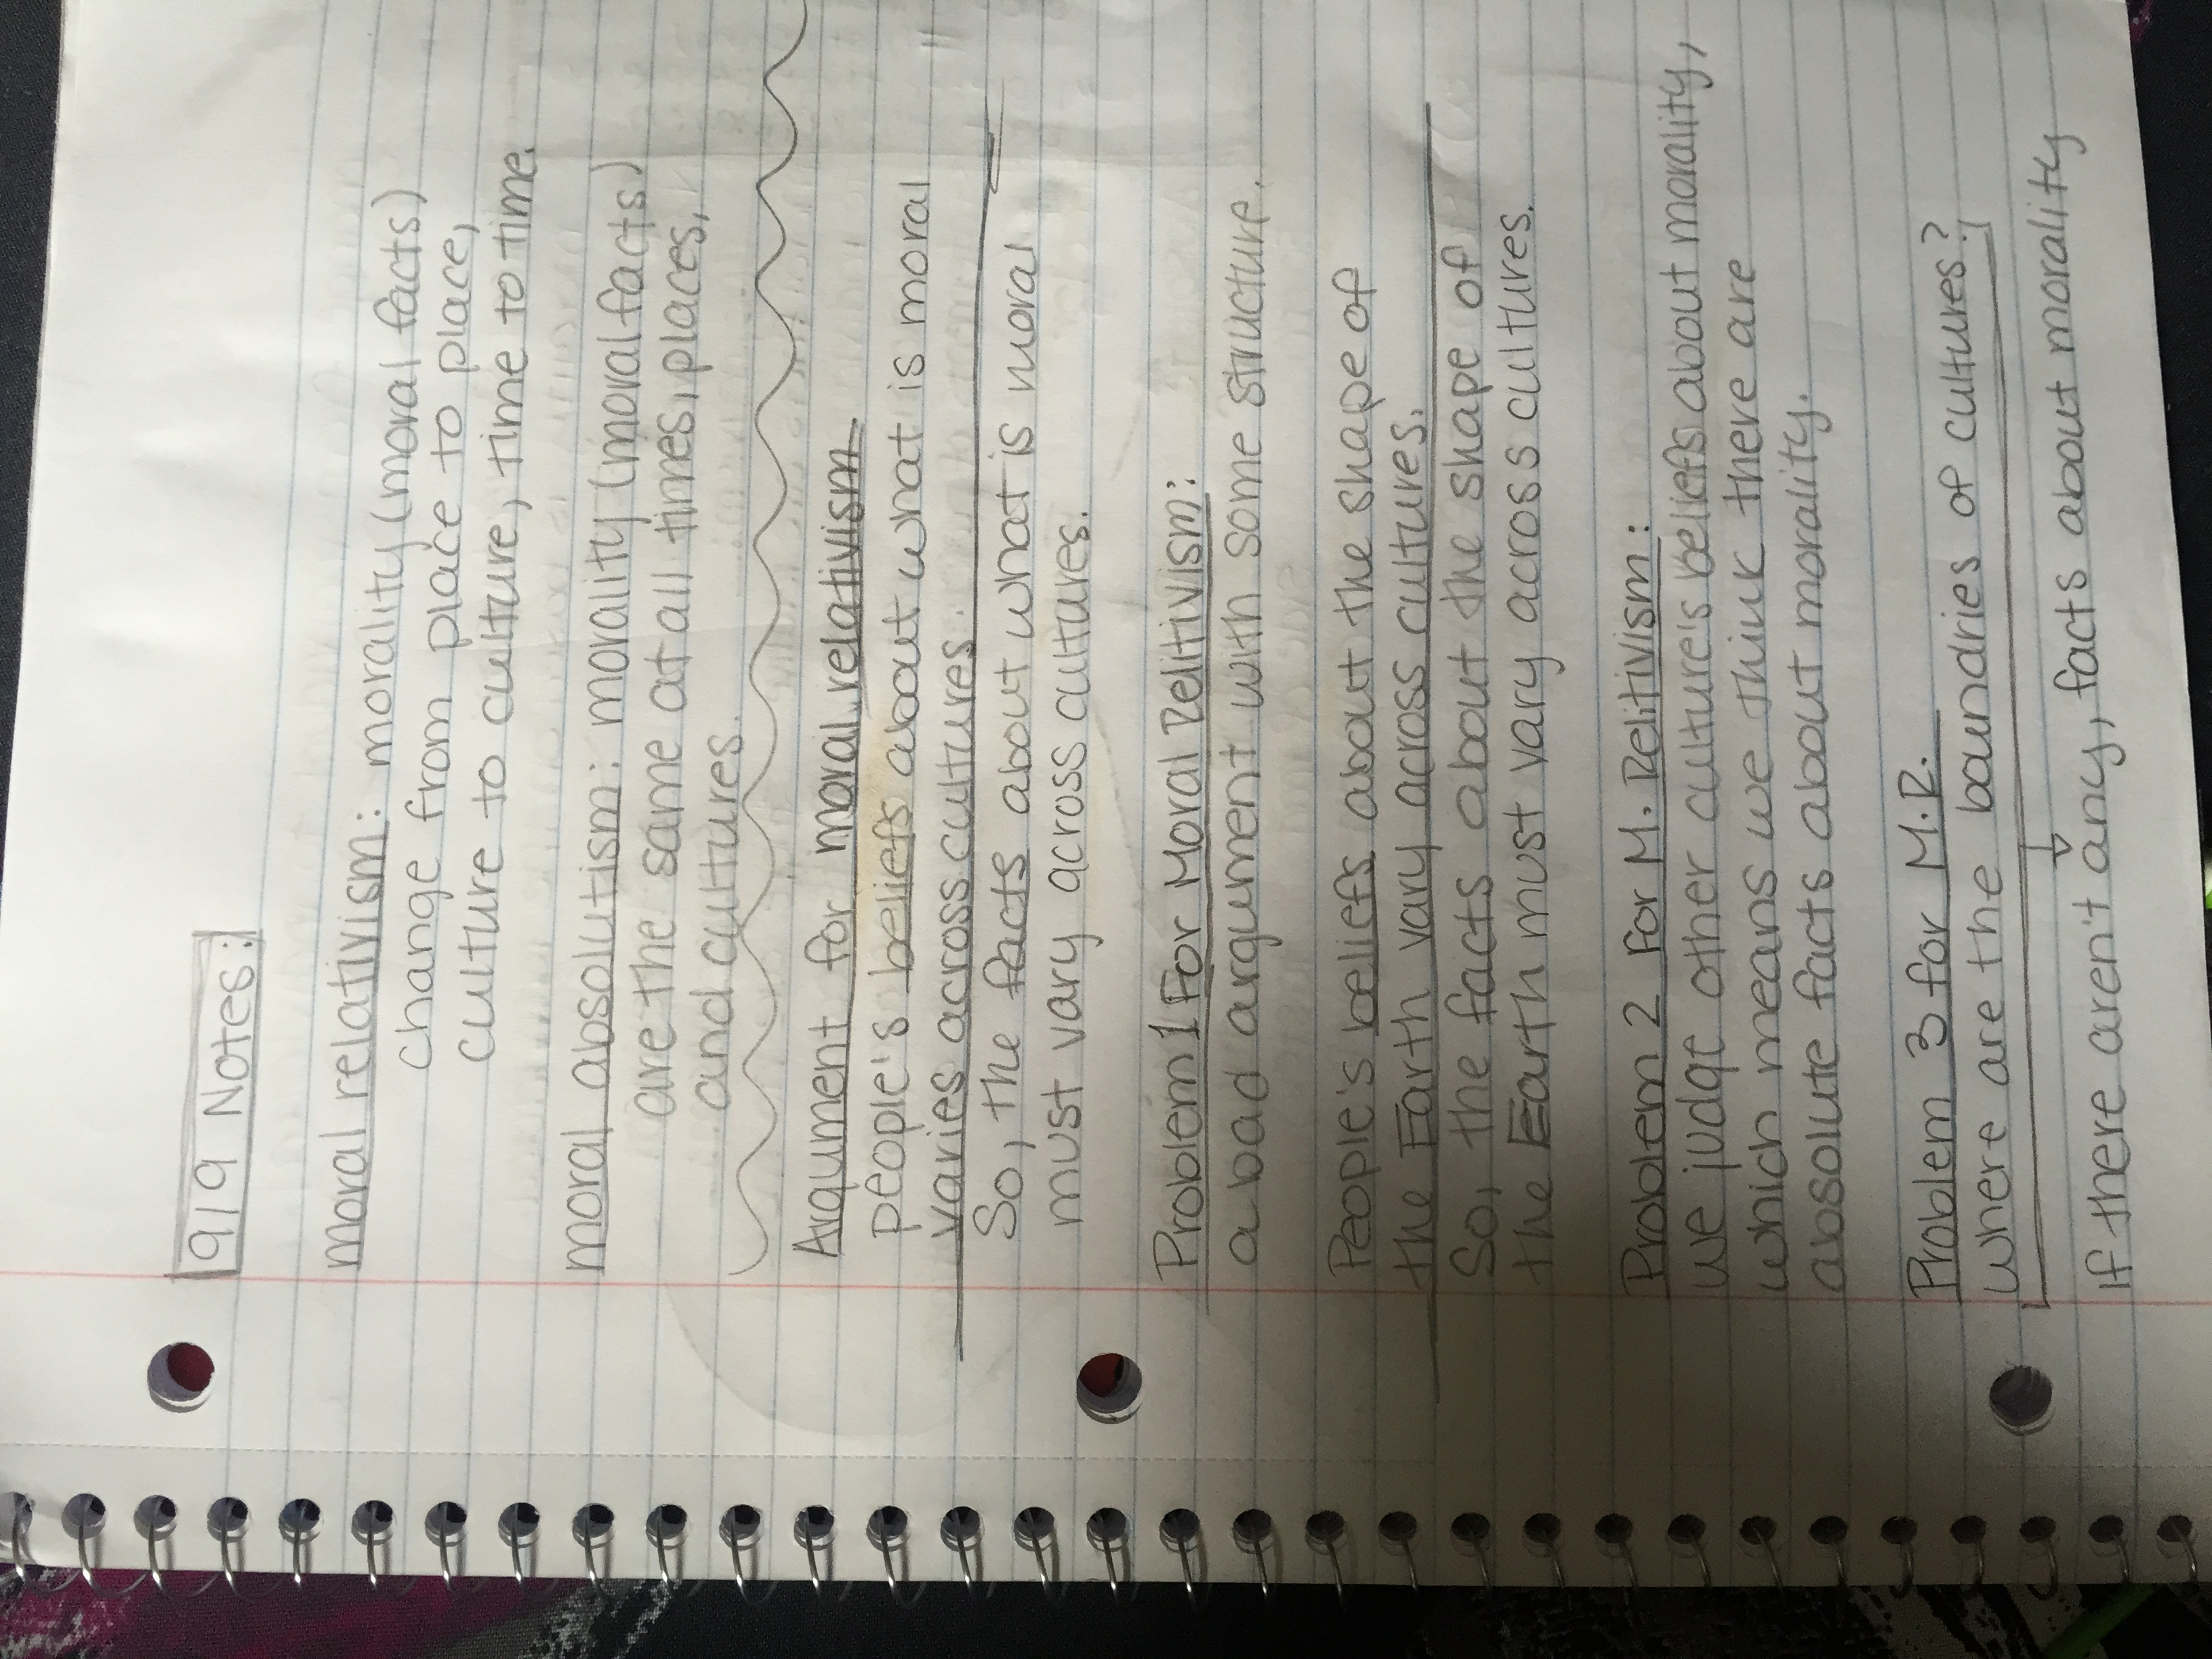 9/9 Notes:
moral relativism: morality (moral facts)
change from place to place,
culture to culture, time to time.
moral absolutism: morality (moral facts)
are the same at all times, places,
and cultures.
Argument for moral relativism
people's beliefs about what is moral
varies across cultures.
So, the facts about what is moral
must vary across cultures.
Problem 1 For Moral Relitivism:
a bad argument with some structure.
People's beliefs about the shape of
the Earth vary across cultures.
So, the facts about the shape of
the Earth must vary across cultures.
Problem 2 for M. Relitivism:
we judge other culture's beliefs about morality,
which means we think there are
absolute facts about morality.
Problem 3 for M.R.
where are the boundries of cultures?
If there aren't any, facts about morality